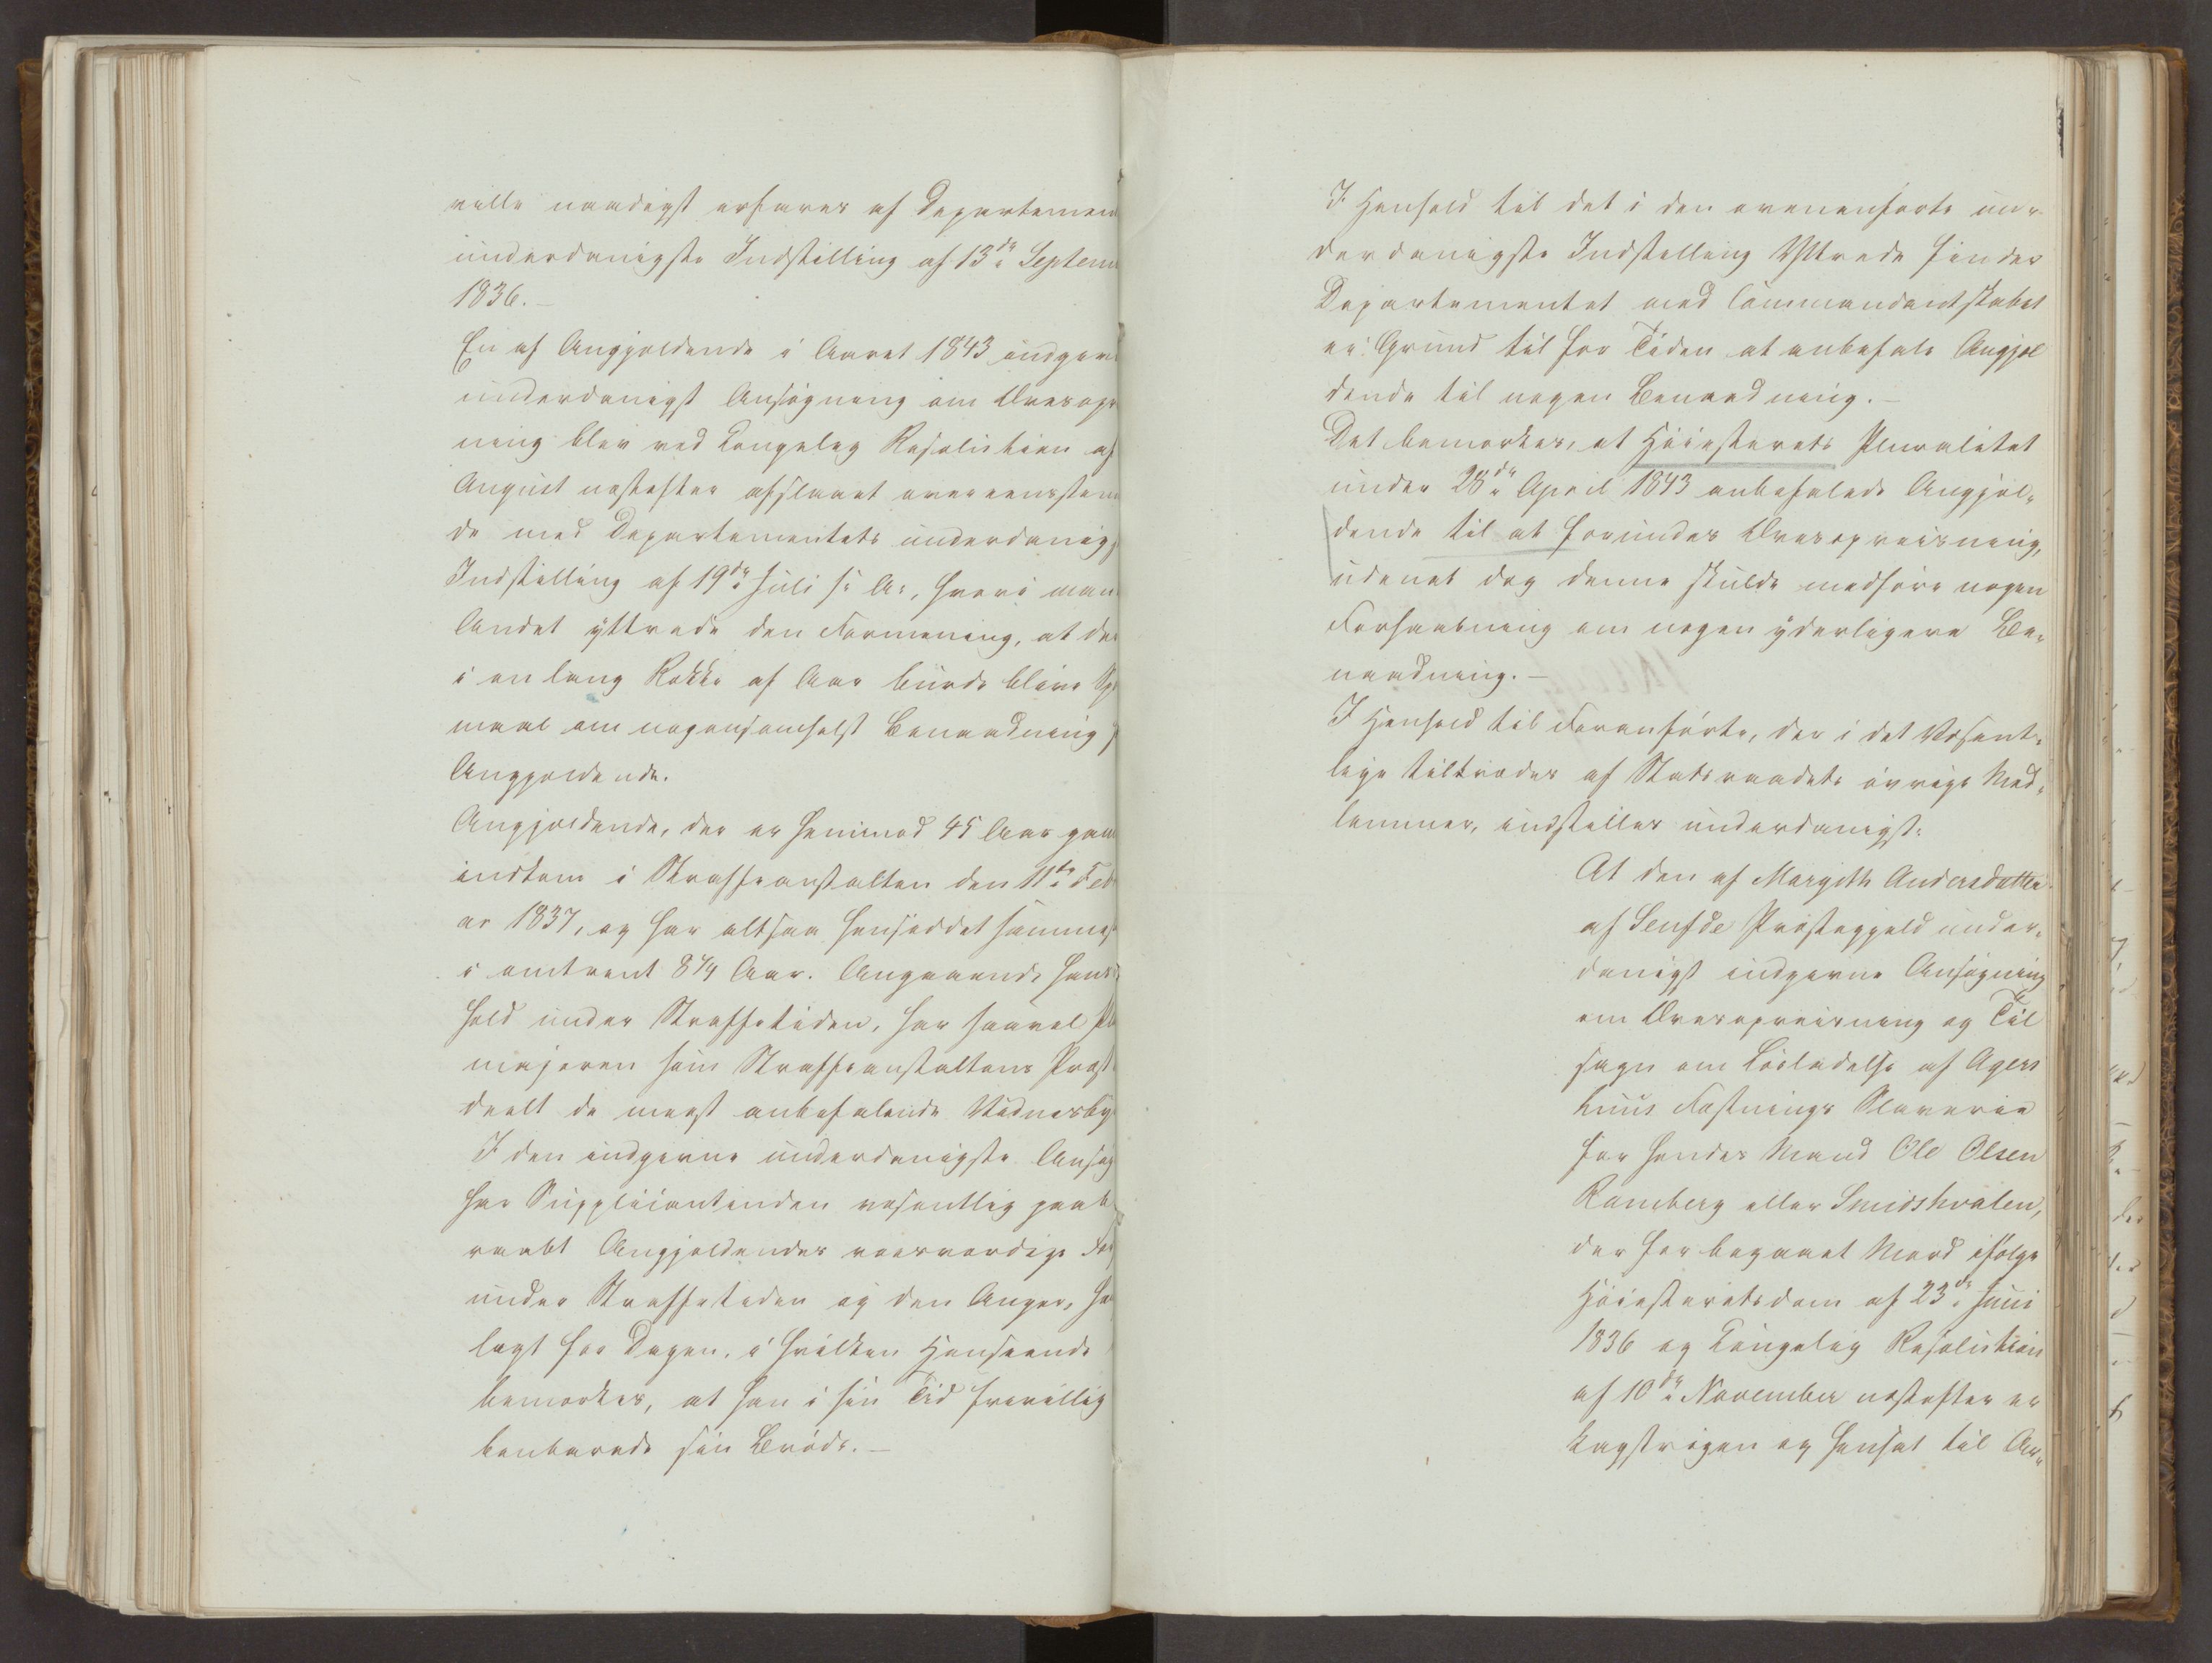 ville naadigst erfares af Departemen
underdanigste Indstilling af 13de Septem
1836.–
En af Angjældende i Aaret 1843 indgive
underdanigst Ansøgning om Æresopr
ning blev ved Kongelig Resolution af
August næstefter afslaaet overeensstem
de med Departementets underdanigs
Indstilling af 19de Juli s: A:, hvori man
Andet yttrede den Formening, at der
i en lang Række af Aar burde blive Sp
maal om nogensomhelst Benaadning f
Angjældende.
Angjældende, der er henimod 45 Aar gam
indkom i Strafanstalten den 11te Feb
ar 1837, og har altsaa hensiddet sammest
i omtrent 8¼ Aar. Angaaende hans
hold under Straffetiden, har saavel Pl
majoren som Straffeanstaltens Præst
deelt de meest anbefalende Vidnesby
I den indgivne underdanigste Ansøg
har Supplicantinden væsentlig paab
raabt Angjældendes roesværdige For
under Straffetiden og den Anger, ha
lagt for Dagen, i hvilken Henseende
bemærkes, at han i sin Tid frivillig
benbarede sin Brøde.–
I Henhold til det i den ovenanførte un-
derdanigste Indstilling Yttrede finder
Departementet med Commandantskabet
ei Grund til for Tiden at anbefale Angjæl
dende til nogen Benaadning.–
Det bemærkes, at Høiesterets Pluralitet
under 28de April 1843 anbefalede Angjæl-
dende til at forundes Æresopreisning,
udenat dog denne skulde medføre nogen
Forhaabning om nogen yderligere Be-
naadning.–
I Henhold til Foranførte, der i det Væsent-
lige tiltrædes af Statsraadets øvrige Med-
lemmer, indstilles underdanigst:
At den af Margith Andersdatter
af Seufde Præstegjeld under-
danigst indgivne Ansøgning
om Æresopreisning og Til
sagn om Løsladelse af Agers
huus Fæstnings Slaverie
for hendes Mand Ole Olsen
Ramberg eller Smidshvalen,
der for begaaet Mord ifølge
Høiesteretsdom af 23de Juni
1836 og Kongelig Resolution
af 10de November næstefter er
kagstrøgen og hensat til Ar-